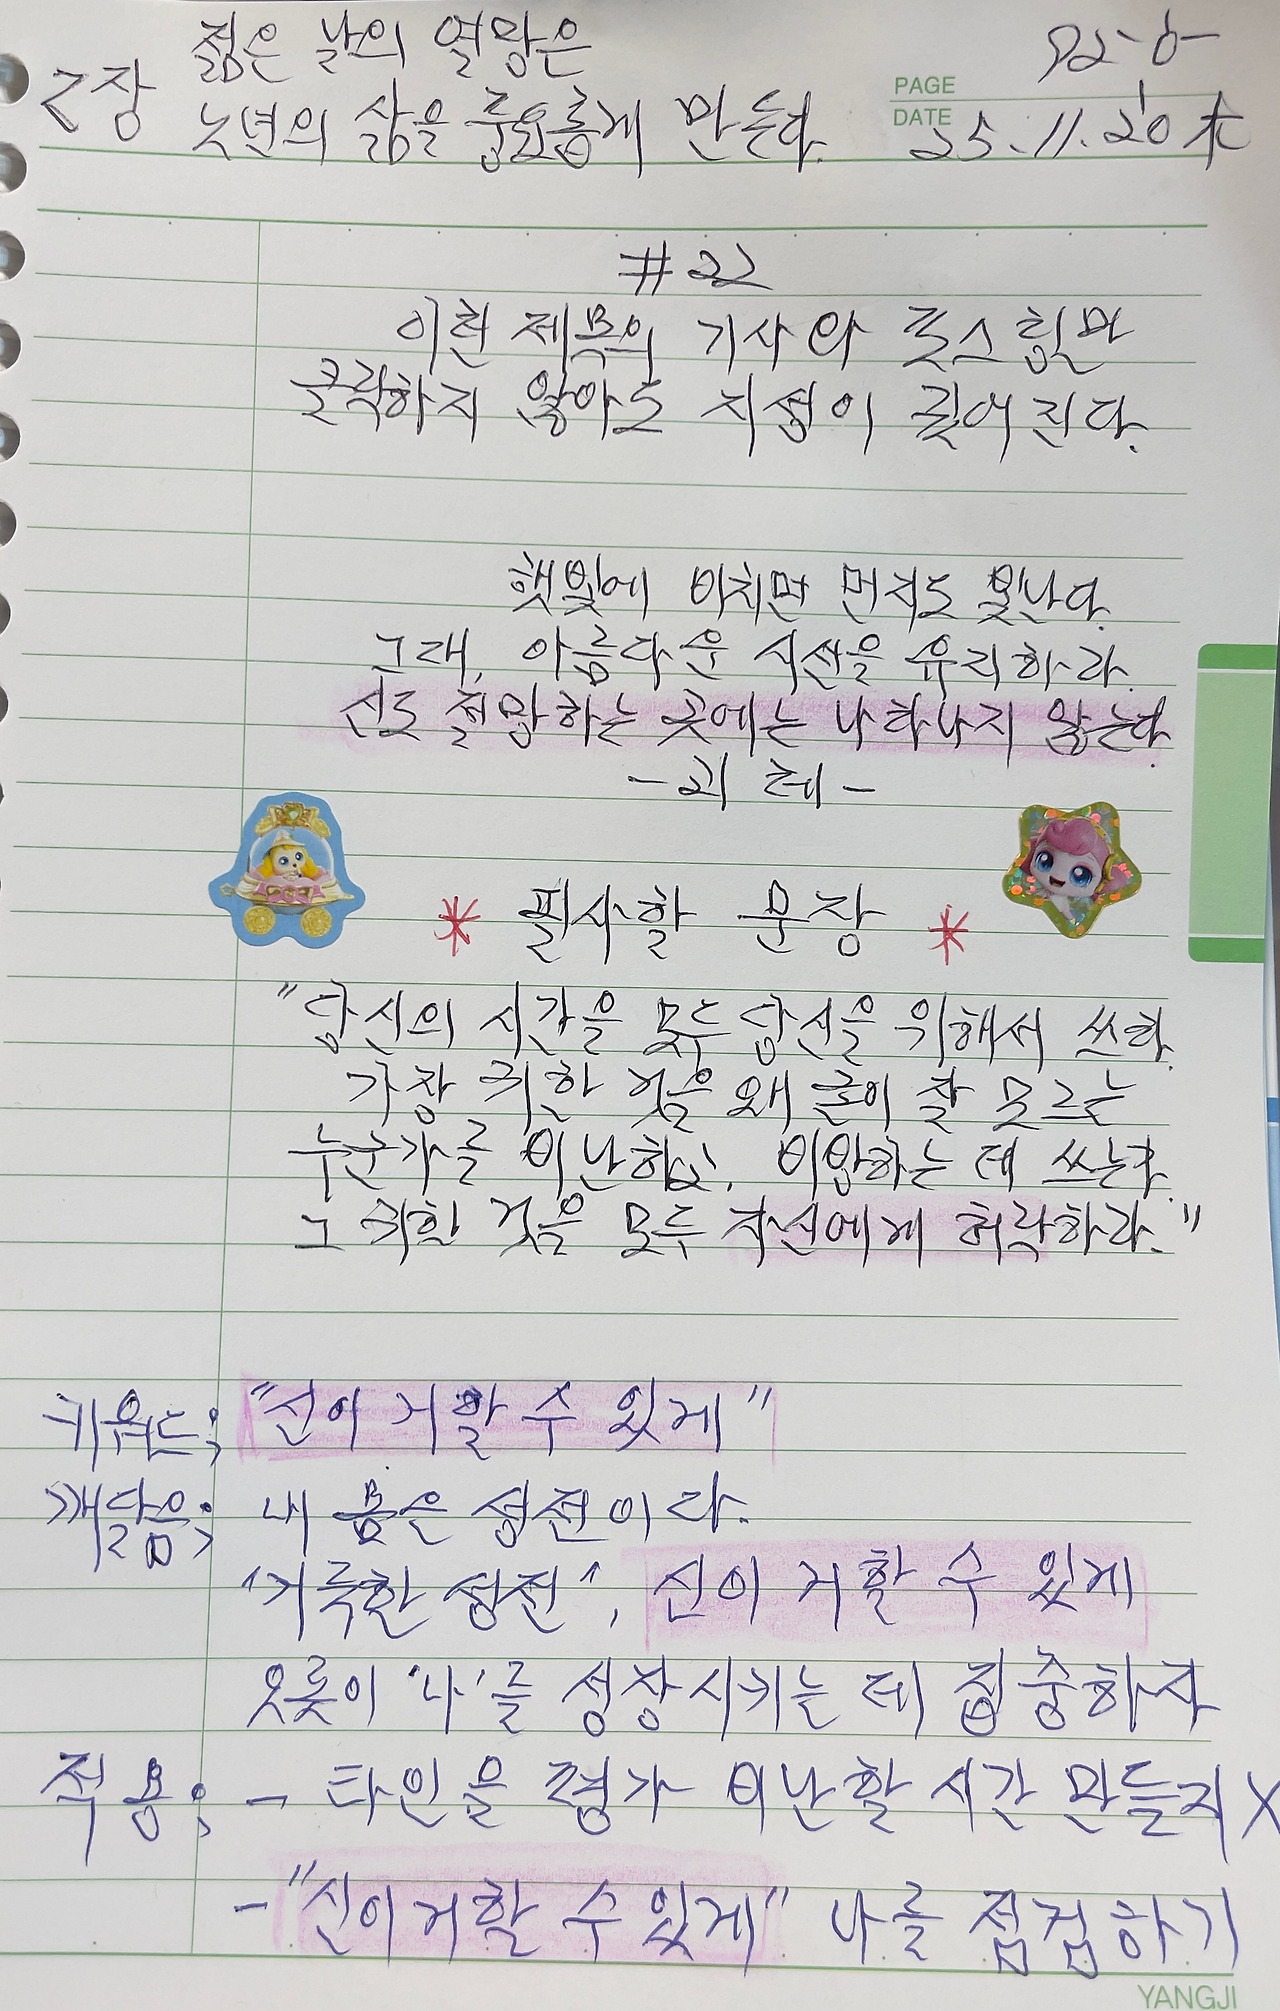 젊은 날의 열망은
2장 노년의 삶을 풍요롭게 만든다.
PAGE 92-상
DATE 25.11.20 木
#22
이런 제목의 기사와 포스팅만
클릭하지 않아도 지성이 깊어진다.
햇빛에 비치면 먼지도 빛난다.
그대, 아름다운 시선을 유지하라.
신도 절망하는 곳에는 나타나지 않는다.
-괴테-
* 필사할 문장 *
"당신의 시간을 모두 당신을 위해서 쓰라.
가장 귀한 것을 왜 굳이 잘 모르는
누군가를 비난하고, 비방하는 데 쓰는가.
그 귀한 것을 모두 자신에게 허락하라."
키워드; "신이 거할 수 있게"
깨달음; 내 몸은 성전이다.
'거룩한 성전', 신이 거할 수 있게
오롯이 '나'를 성장시키는 데 집중하자
적용; - 타인을 평가 비난할 시간 만들지 X
- "신이 거할 수 있게" 나를 점검하기
YANGJI